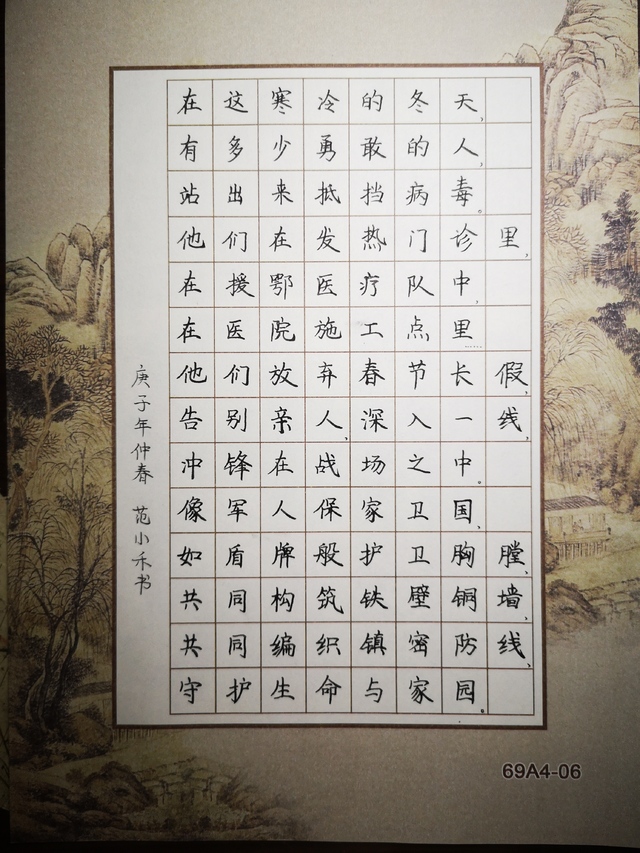 在这寒冷的冬天，
有多少勇敢的人，
站出来抵挡病毒。
他们在发热门诊里，
在援鄂医疗队中，
在医院施工点里……
他们放弃春节长假，
告别亲人，深入一线，
冲锋在战场之中。
像军人保家卫国，
如盾牌般护卫胸膛，
共同构筑铁壁铜墙，
共同编织镇密防线，
守护生命与家园。
庚子年仲春 范小禾书
69A4-06